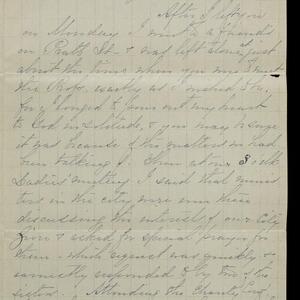 After I left you
on Monday I met a friend
on Pratt St - & was left alone, just
about the time when you were to meet
the Profs. exactly as I wished to be
for I longed to pour out my heart
to God in solitude, & you may be sure
it was because of the matters we had
been talking of. Then at our 3 o'clk
Ladies meeting I said that minis
ters in the city were even then
discussing the interest of our City
& asked for special prayer for
them - which request was quickly &
earnestly responded to by two of the
sisters. Attending the